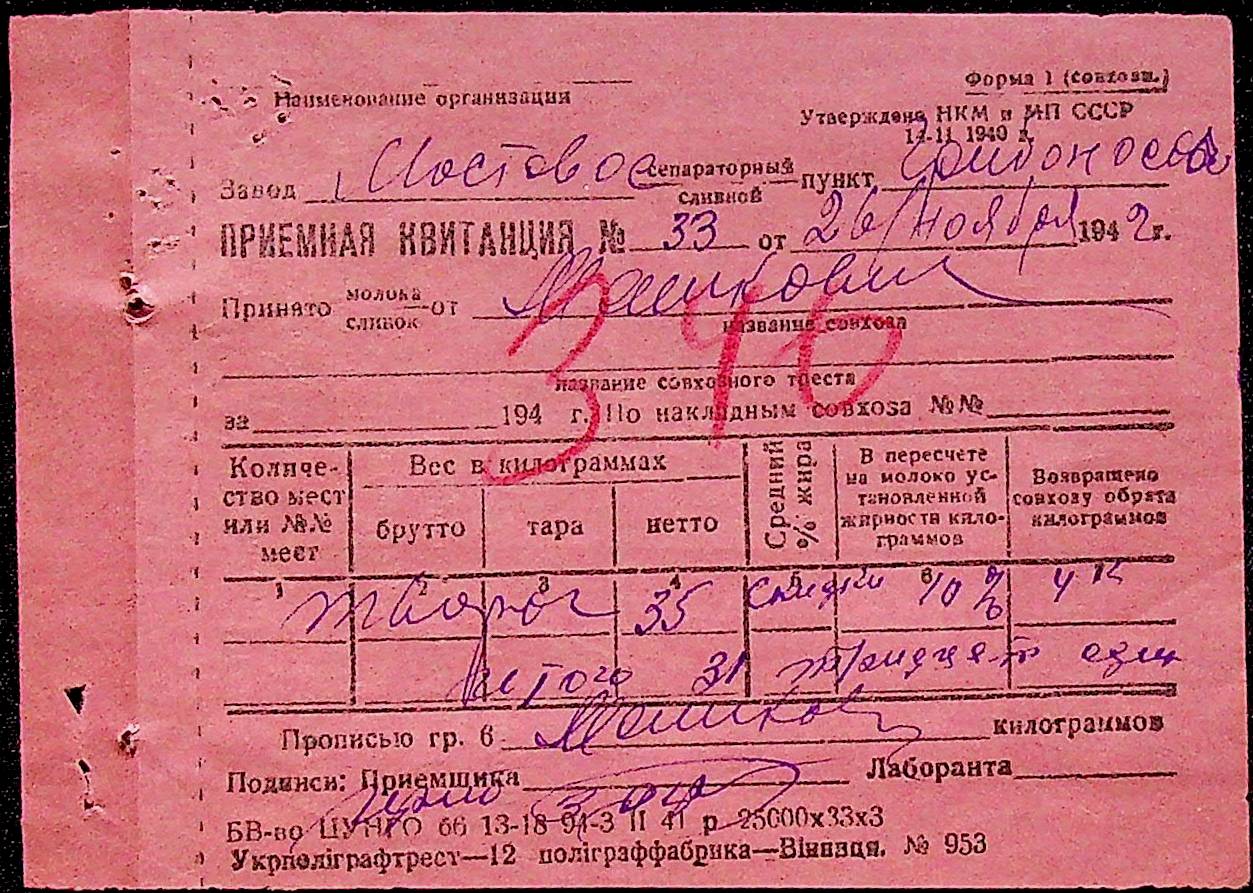 Форма 1 (совхозн.)
Наименование организации
Утверждена НКМ и МП СССР
14-II 1940 г.
Завод сепараторный сливной пункт
ПРИЕМНАЯ КВИТАНЦИЯ № 33 от 26/Ноября 1942 г.
Принято молока сливок от
название совхоза
340
название совхозного треста
за 194 г. По накладным совхоза №№
Количество мест или №№ мест
Вес в килограммах
брутто тара нетто
Средний % жира
В пересчете на молоко установленной жирности килограммов
Возвращено совхозу обрата килограммов
1 2 3 4 5 6
творог 35 скидки 10% 4 к
Итого 31 тридцать один
Прописью гр. 6 килограммов
Подписи: Приемщика Лаборанта
БВ-во ЦУНГО 66 13-18 94-3 II 41 р 25000х33х3
Укрполіграфтрест—12 поліграффабрика—Вінниця. № 953